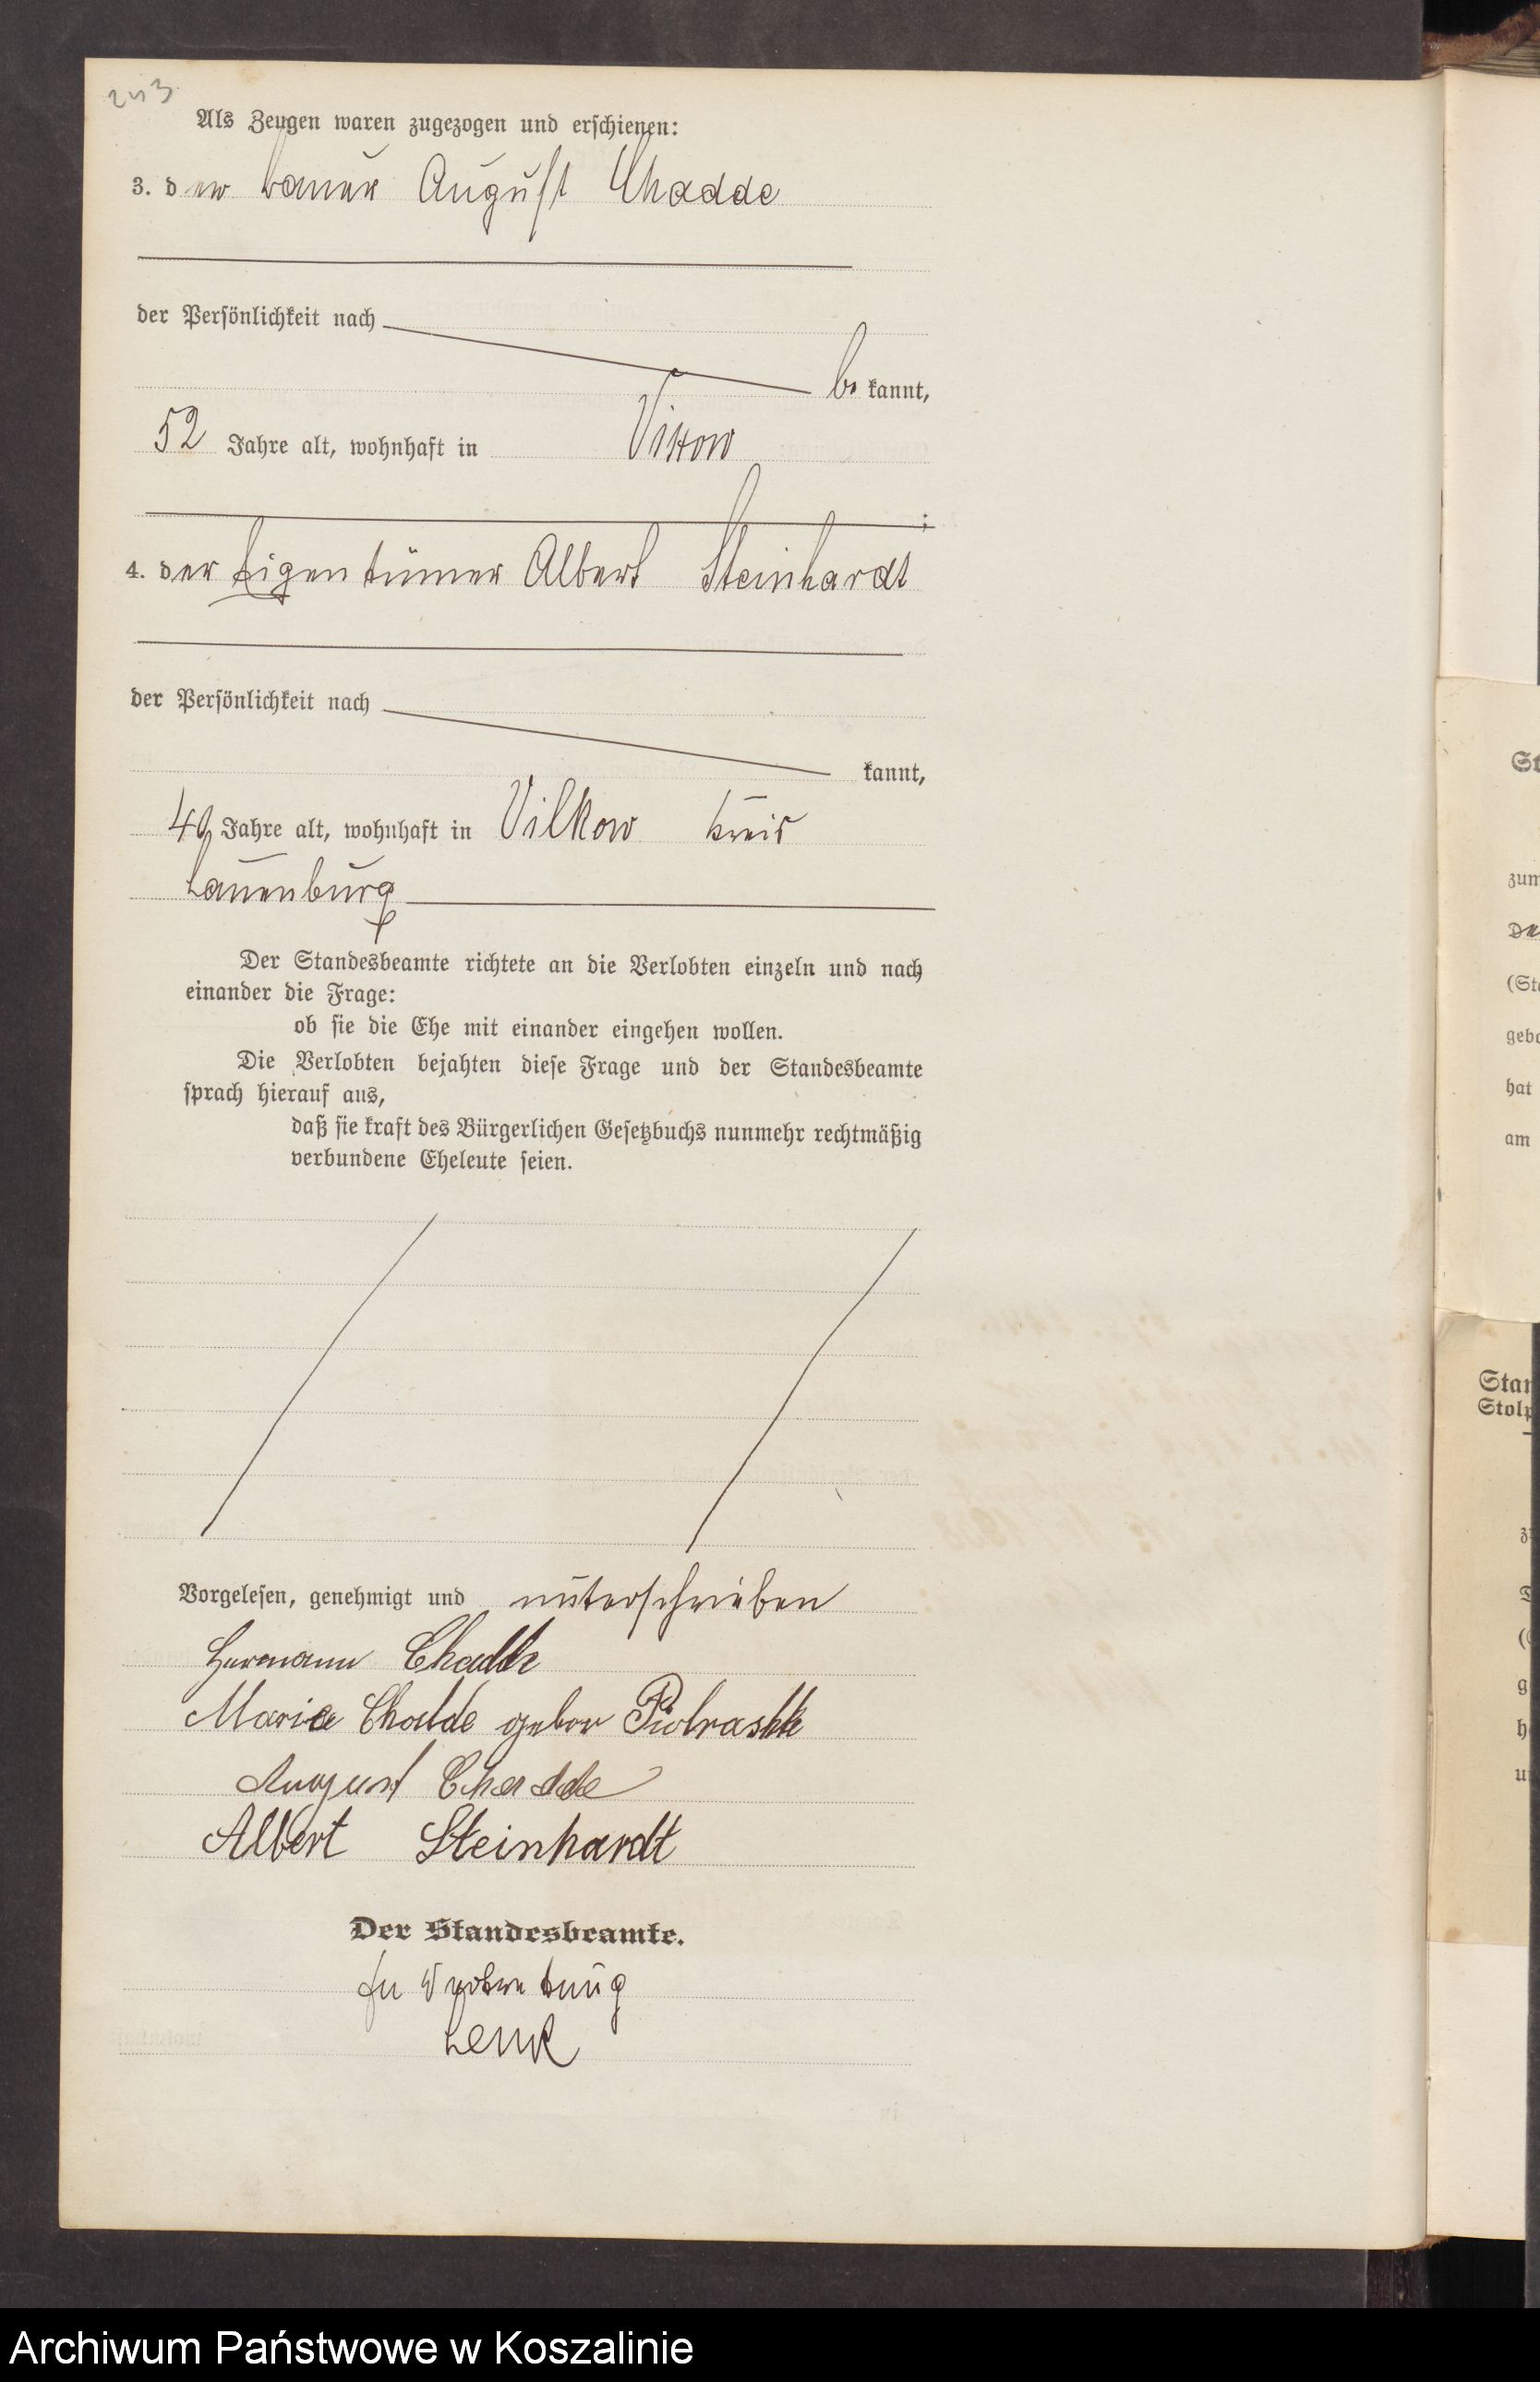 243
Als Zeugen waren zugezogen und erschienen:
3. der Bauer August Chadde
der Persönlichkeit nach
be kannt,
52 Jahre alt, wohnhaft in
;
4. der Eigentümer Albert Steinhardt
der Persönlichkeit nach
kannt,
49 Jahre alt, wohnhaft in Vilkow Kreis
Lauenburg
Der Standesbeamte richtete an die Verlobten einzeln und nach
einander die Frage:
ob sie die Ehe mit einander eingehen wollen.
Die Verlobten bejahten diese Frage und der Standesbeamte
sprach hierauf aus,
daß sie kraft des Bürgerlichen Gesetzbuchs nunmehr rechtmäßig
verbundene Eheleute seien.
Vorgelesen, genehmigt und unterschrieben
Hermann Chadde
Marie Chadde gebor
August Chadde
Albert Steinhardt
Der Standesbeamte.
In Vertretung
Lenk
zum
(St
gebo
hat
am
Stan
Stolp
Archiwum Państwowe w Koszalinie